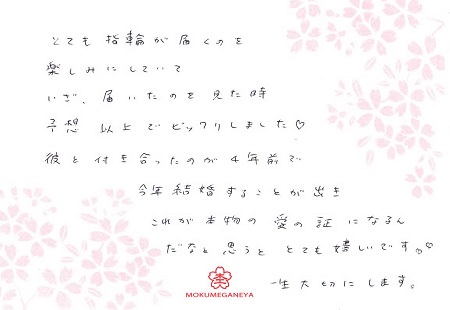 とても指輪が届くのを
楽しみにしていて
いざ、届いたのを見た時
予想以上でビックリしました♡
彼と付き合ったのが4年前で
今年結婚することが出き
これが本物の愛の証になるん
だなと思うととても嬉しいです♡
一生大切にします。
MOKUMEGANEYA